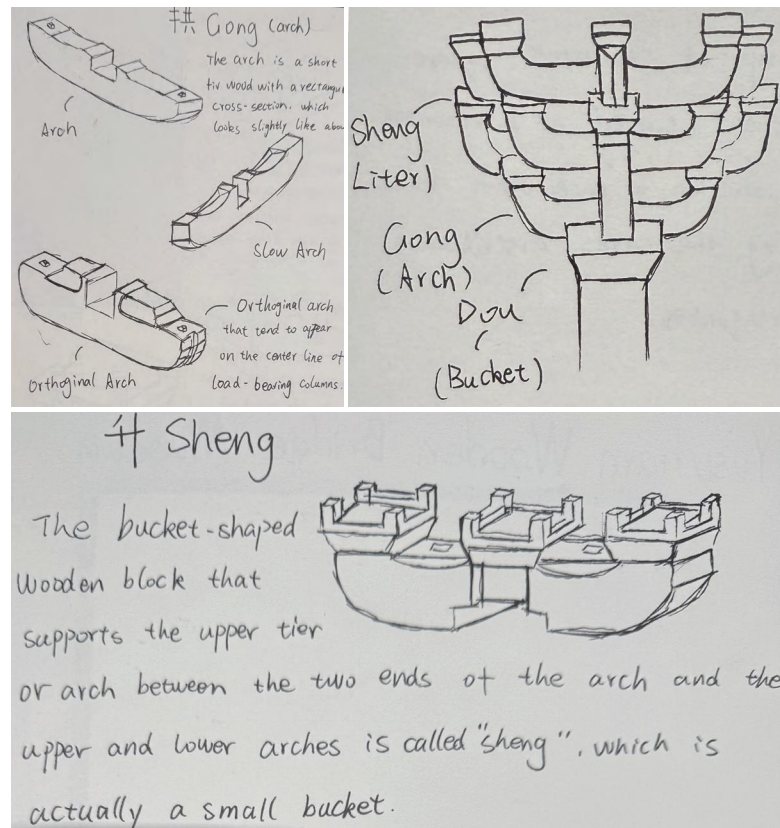 拱 Gong (arch)
The arch is a short
tiv wood with a rectangu
cross-section. which
looks slightly like abou
Arch
Slow Arch
Orthoginal arch
that tend to appear
on the center line of
load-bearing columns.
Orthoginal Arch
Sheng
Liter)
Gong
(Arch)
Dou
(Bucket)
升 Sheng
The bucket-shaped
wooden block that
supports the upper tier
or arch between the two ends of the arch and the
upper and lower arches is called "sheng", which is
actually a small bucket.